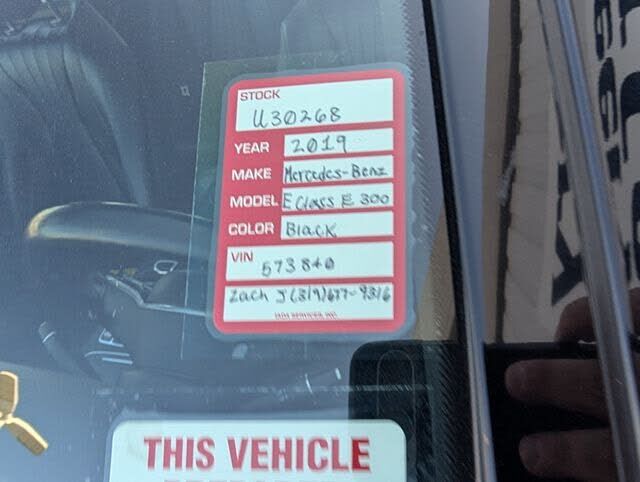 STOCK
U30268
YEAR 2019
MAKE Mercedes-Benz
MODEL E Class E 300
COLOR Black
VIN
573840
Zach J (319)677-9316
IADA SERVICES, INC.
THIS VEHICLE